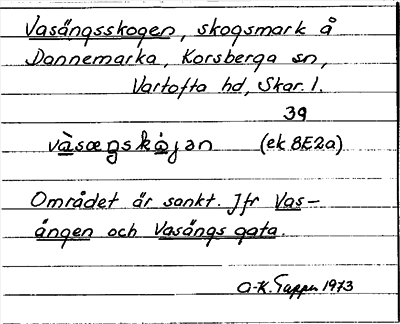 Vasängsskogen, skogsmark å
Dannemarka, Korsberga sn,
Vartofta hd, Skar. l.
39
vàsœŋskȯ́jan (ek 8E2a)
Området är sankt. Jfr Vas-
ängen och Vasängs gata.
A-K. Tapper 1973